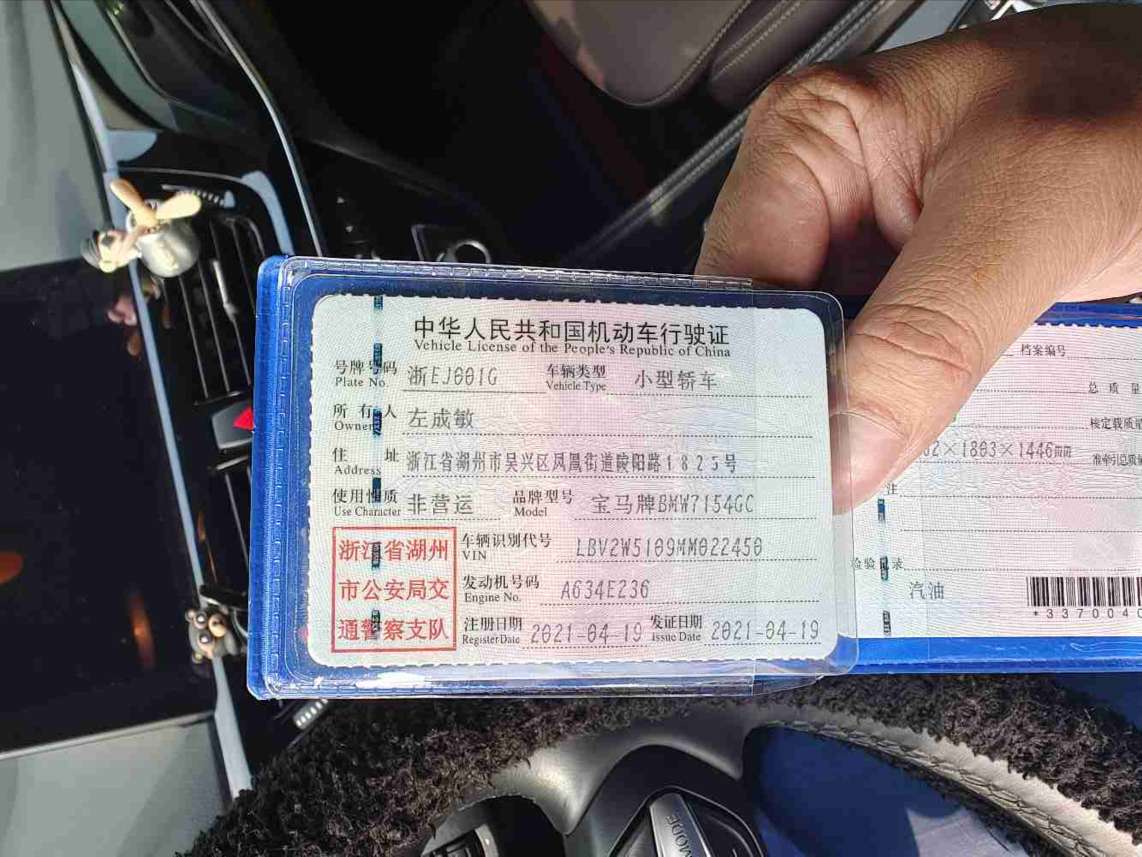 中华人民共和国机动车行驶证
Vehicle License of the People's Republic of China
号牌号码 浙EJ001G 车辆类型 小型轿车
Plate No. Vehicle Type
所有人 左成敏
Owner
住址 浙江省湖州市吴兴区凤凰街道陵阳路1825号
Address
使用性质 非营运 品牌型号 宝马牌BMW7154GC
Use Character Model
浙江省湖州
市公安局交
通警察支队
车辆识别代号 LBV2W5109MM022450
VIN
发动机号码 A634E236
Engine No.
注册日期 2021-04-19 发证日期 2021-04-19
Register Date Issue Date
档案编号
总质量
核定载质量
×1803×1446mm
准牵引总质量
注
检验记录
汽油
*33700
MODE